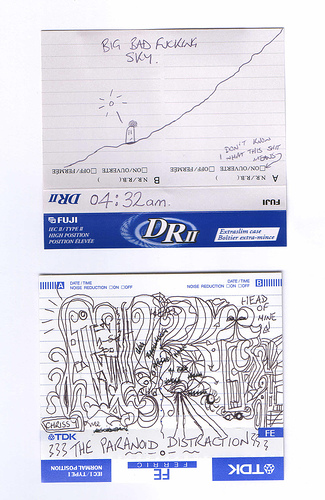 BIG BAD FUCKING
SKY.
DON'T KNOW
WHAT THIS SHIT
MEANS
A
N.R./R.B.(
)
□ ON/OUVERTE
□ OFF/FERMÉE
B
N.R./R.B.(
)
□ ON/OUVERTE
□ OFF/FERMÉE
FUJI
DRII 04:32am.
FUJI
IEC II/TYPE II
HIGH POSITION
POSITION ÉLEVÉE
DRII
Extraslim case
Boîtier extra-mince
A DATE/TIME
NOISE REDUCTION □ON □OFF
DATE/TIME B
NOISE REDUCTION □ON □OFF
HEAD
OF
MINE
CHRISSY
TDK
FE
THE PARANOID DISTRACTION
IEC I/TYPE I
NORMAL POSITION
FERRIC
FE
TDK